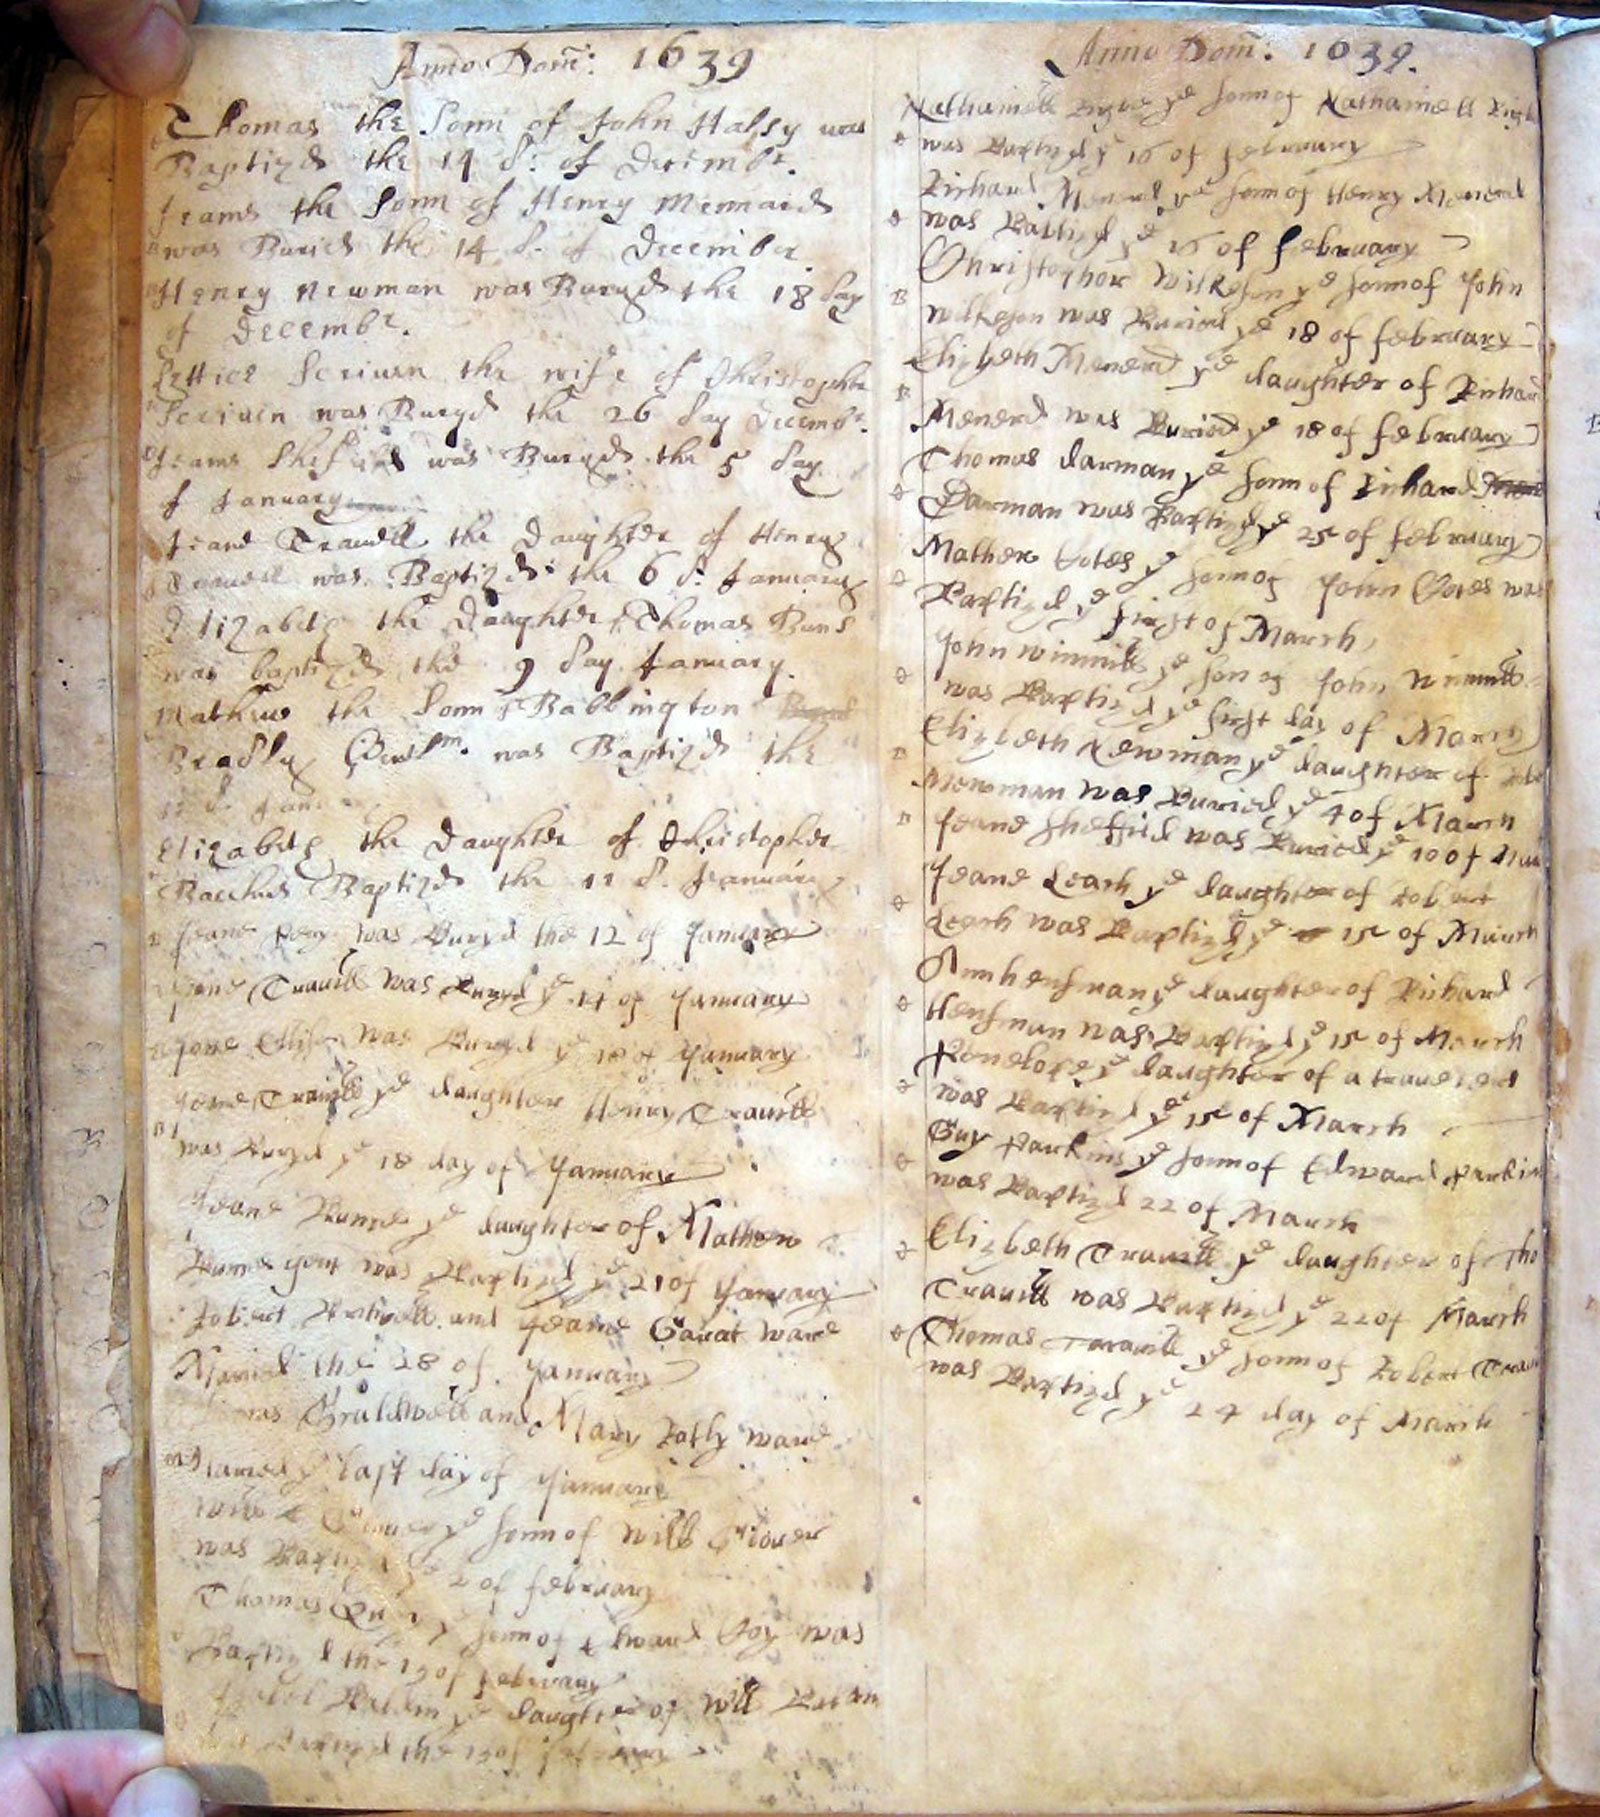 Anno Dom: 1639
Thomas the Sonn of John Halsy was
Baptizd the 14 d: of Decembr.
Jeams the Sonn of Henry Mennard
was Buried the 14 d. of December
Henry Newman was Buryd the 18 day
of Decembr.
Lettice Scriuen the wife of Christopher
Scriuen was Buryd the 26 day Decembr.
Jeams was Buryd the 5 day
of January
Jeane Trauell the Daughter of Henry
Trauell was Baptizd the 6 d: January
Elizabeth the Daughter of Thomas
was baptizd the 9 day January.
Mathew the Sonn of Babbington
Bradly Gentlm. was Baptizd the
Elizabeth the Daughter of Christopher
Bacchus Baptizd the 11 d. Jeanuary
Jeane was Buryd the 12 of January
Jone Trauell was Buryd ye 14 of January
Jone was Buryd ye 18 of January
Jone Trauell ye daughter Henry Trauell
was Buryd ye 18 day of January
Jeane ye daughter of Mathew
gent was Baptizd ye 21 of January
Robert and Jeane Garat ware
Maried the 28 of January
and Mary ware
Maried ye last day of January
ye sonn of Will Glouer
was Baptizd ye 2 of february
Thomas ye sonn of Edward Coy was
Baptizd the 19 of february
ye daughter of Will
the 19 of february
Anno Dom: 1639.
Nathaniell ye sonn of Nathaniell
was Baptizd ye 16 of february
Richard Menerd ye sonn of Henry Menerd
was Baptizd ye 16 of february
Christophor Wilkeson ye sonn of John
Wilkeson was Buried ye 18 of february
Elizbeth Menerd ye daughter of Richard
Menerd was Buried ye 18 of february
Thomas darman ye sonn of Richard
Darman was Baptizd ye 25 of february
Mathew Cotes ye sonn of John Cotes was
Baptizd ye first of March
John Winmill ye son of John Winmill
was Baptizd ye first day of March
Elizbeth Newman ye daughter of
Newman was Buried ye 4 of March
Jeane sheffild was Buried ye 10 of
Jeane Leach ye daughter of Robert
Leach was Baptizd ye 15 of March
Ann hensman ye daughter of Richard
Hensman was Baptizd ye 15 of March
Penelope ye daughter of a traueler
was Baptizd ye 15 of March
Guy Parkins ye sonn of Edward Parkins
was Baptizd 22 of March
Elizbeth Trauell ye daughter of Tho
Trauell was Baptizd ye 22 of March
Thomas Trauell ye sonn of Robert
was Baptizd ye 24 day of March